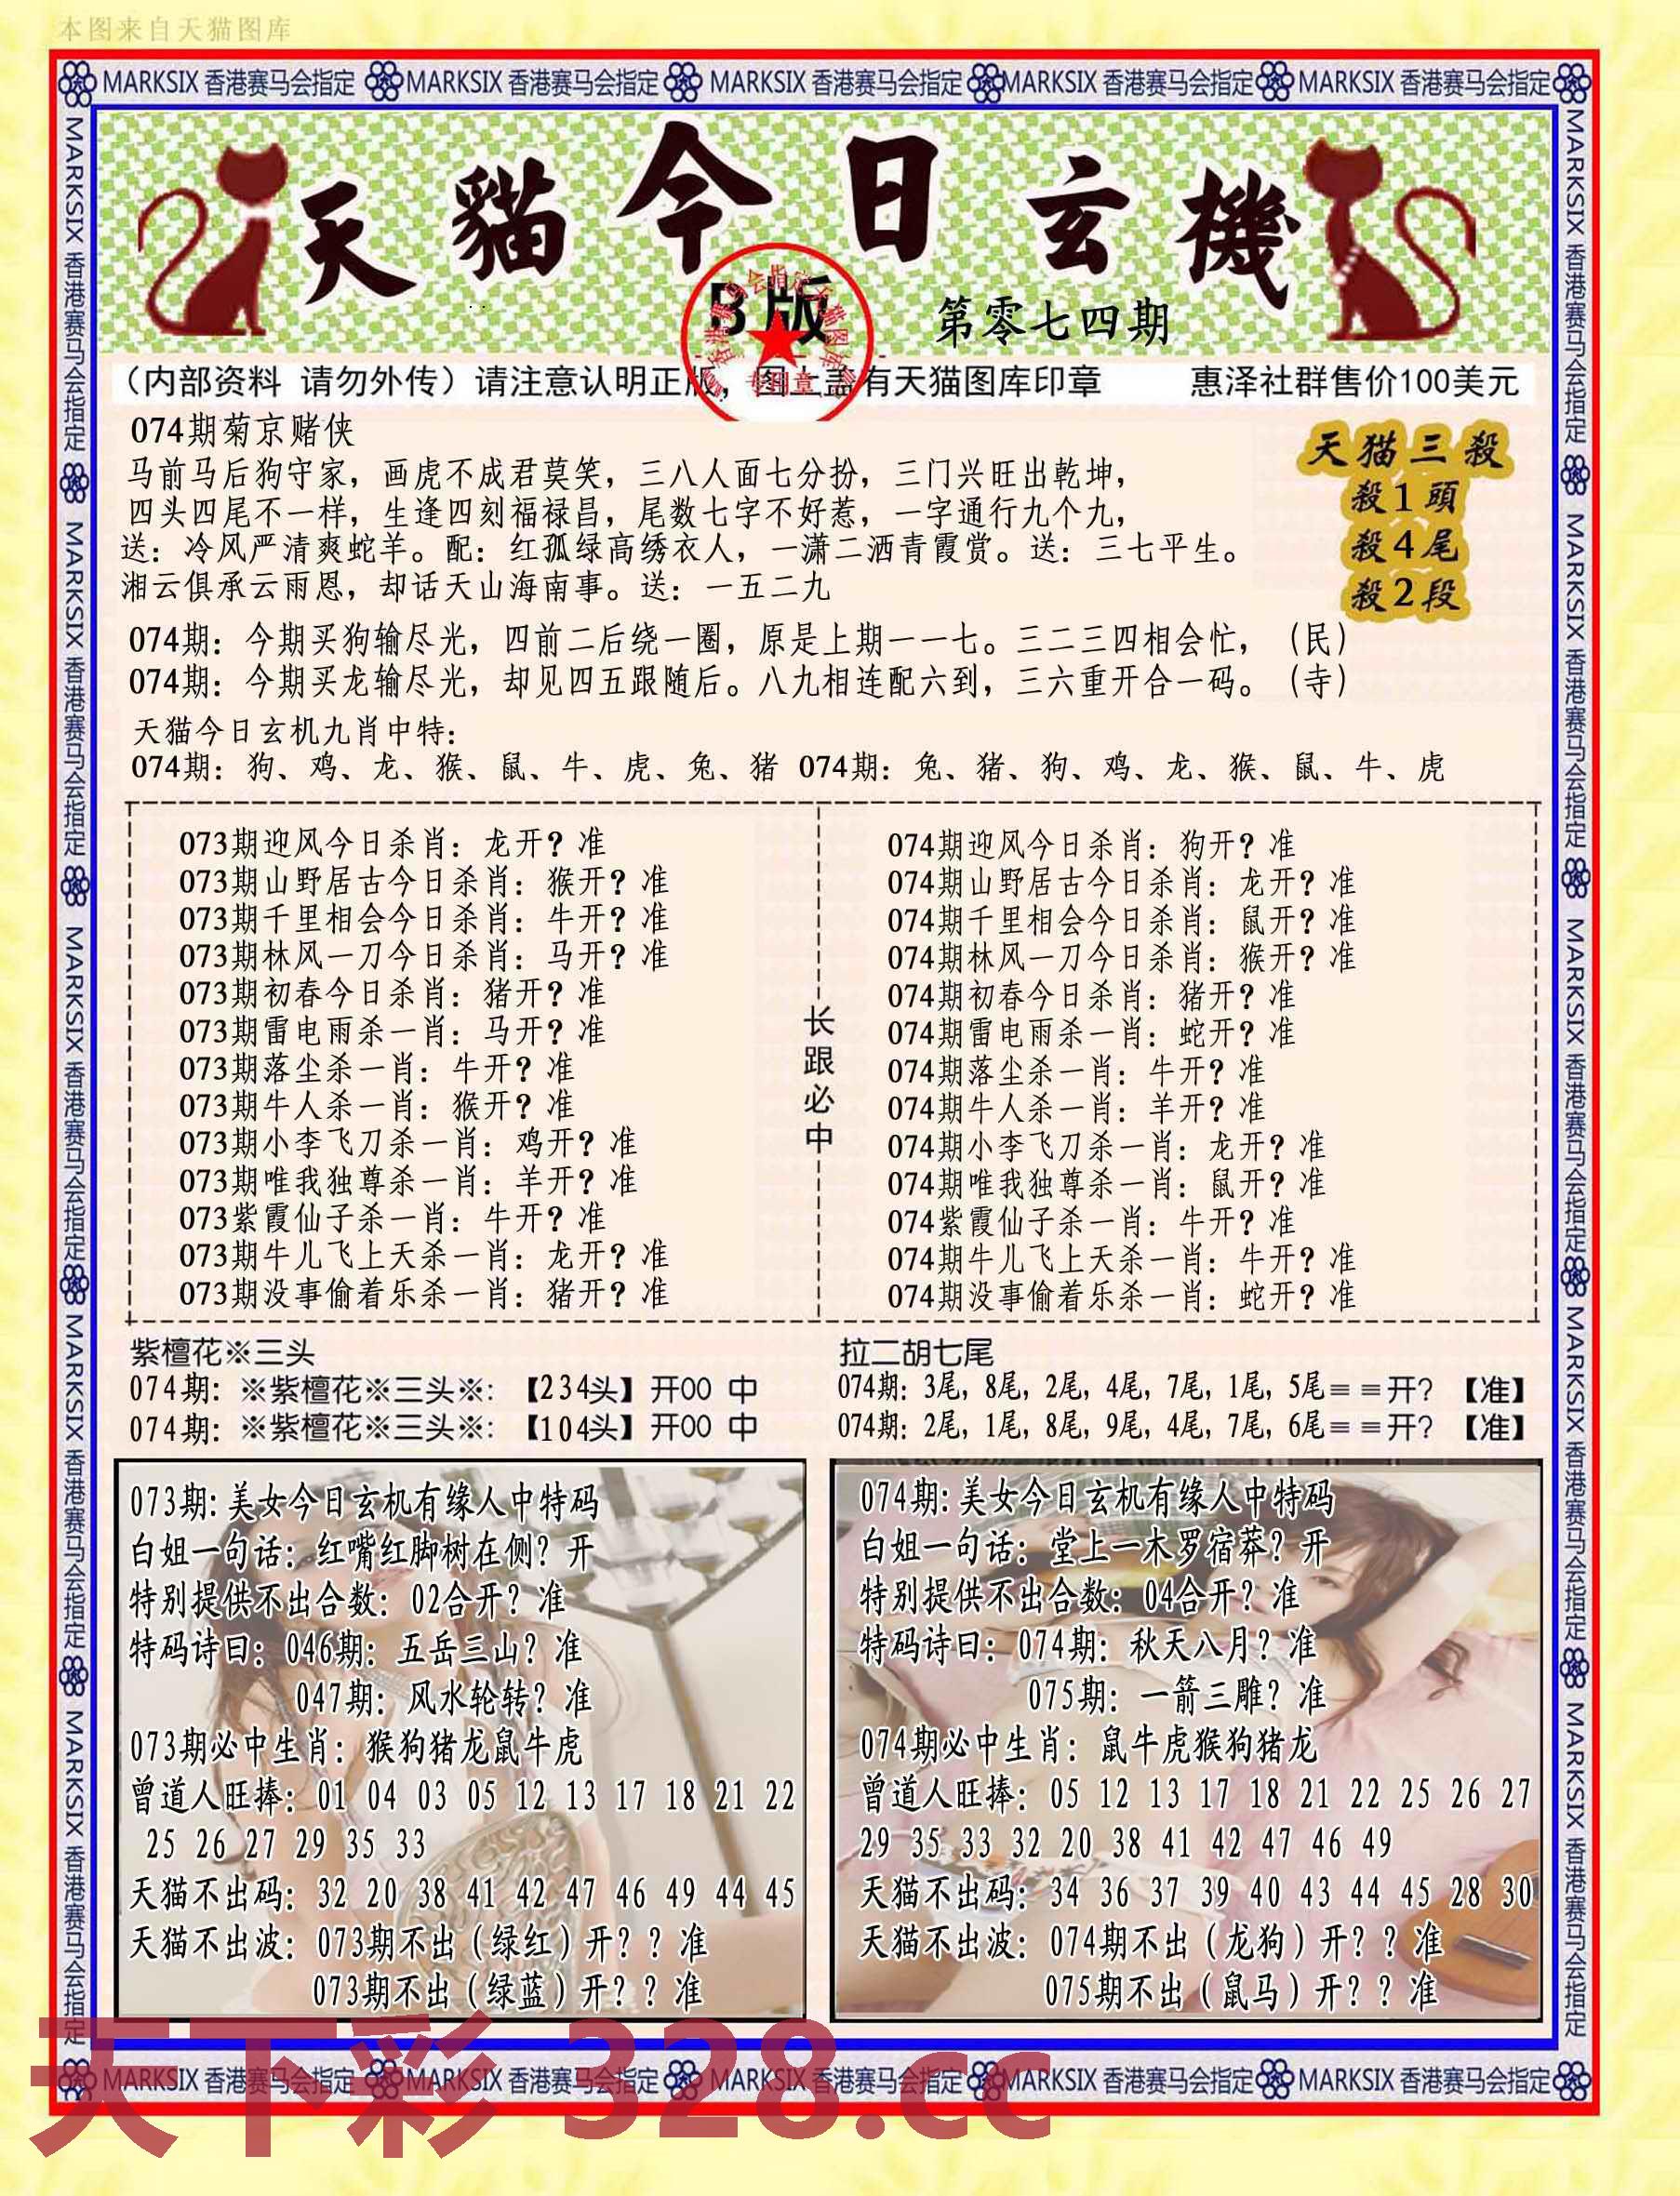 本图来自天猫图库
MARKSIX 香港赛马会指定 MARKSIX 香港赛马会指定 MARKSIX 香港赛马会指定 MARKSIX 香港赛马会指定 MARKSIX 香港赛马会指定
MARKSIX 香港赛马会指定 MARKSIX 香港赛马会指定 MARKSIX 香港赛马会指定 MARKSIX 香港赛马会指定 MARKSIX 香港赛马会指定
MARKSIX 香港赛马会指定 MARKSIX 香港赛马会指定 MARKSIX 香港赛马会指定 MARKSIX 香港赛马会指定 MARKSIX 香港赛马会指定
天貓今日玄機
B版
第零七四期
香港赛马会指定天猫图库
专用章
(内部资料 请勿外传)请注意认明正版,图上盖有天猫图库印章
惠泽社群售价100美元
074期菊京赌侠
马前马后狗守家,画虎不成君莫笑,三八人面七分扮,三门兴旺出乾坤,
四头四尾不一样,生逢四刻福禄昌,尾数七字不好惹,一字通行九个九,
送:冷风严清爽蛇羊。配:红孤绿高绣衣人,一潇二洒青霞赏。送:三七平生。
湘云俱承云雨恩,却话天山海南事。送:一五二九
天猫三殺
殺1頭
殺4尾
殺2段
074期:今期买狗输尽光,四前二后绕一圈,原是上期一一七。三二三四相会忙,(民)
074期:今期买龙输尽光,却见四五跟随后。八九相连配六到,三六重开合一码。(寺)
天猫今日玄机九肖中特:
074期:狗、鸡、龙、猴、鼠、牛、虎、兔、猪 074期:兔、猪、狗、鸡、龙、猴、鼠、牛、虎
073期迎风今日杀肖:龙开?准
073期山野居古今日杀肖:猴开?准
073期千里相会今日杀肖:牛开?准
073期林风一刀今日杀肖:马开?准
073期初春今日杀肖:猪开?准
073期雷电雨杀一肖:马开?准
073期落尘杀一肖:牛开?准
073期牛人杀一肖:猴开?准
073期小李飞刀杀一肖:鸡开?准
073期唯我独尊杀一肖:羊开?准
073紫霞仙子杀一肖:牛开?准
073期牛儿飞上天杀一肖:龙开?准
073期没事偷着乐杀一肖:猪开?准
长跟必中
074期迎风今日杀肖:狗开?准
074期山野居古今日杀肖:龙开?准
074期千里相会今日杀肖:鼠开?准
074期林风一刀今日杀肖:猴开?准
074期初春今日杀肖:猪开?准
074期雷电雨杀一肖:蛇开?准
074期落尘杀一肖:牛开?准
074期牛人杀一肖:羊开?准
074期小李飞刀杀一肖:龙开?准
074期唯我独尊杀一肖:鼠开?准
074紫霞仙子杀一肖:牛开?准
074期牛儿飞上天杀一肖:牛开?准
074期没事偷着乐杀一肖:蛇开?准
紫檀花※三头
074期:※紫檀花※三头※:【234头】开00 中
074期:※紫檀花※三头※:【104头】开00 中
拉二胡七尾
074期:3尾,8尾,2尾,4尾,7尾,1尾,5尾==开?【准】
074期:2尾,1尾,8尾,9尾,4尾,7尾,6尾==开?【准】
073期:美女今日玄机有缘人中特码
白姐一句话:红嘴红脚树在侧?开
特别提供不出合数:02合开?准
特码诗曰:046期:五岳三山?准
047期:风水轮转?准
073期必中生肖:猴狗猪龙鼠牛虎
曾道人旺捧:01 04 03 05 12 13 17 18 21 22
25 26 27 29 35 33
天猫不出码:32 20 38 41 42 47 46 49 44 45
天猫不出波:073期不出(绿红)开??准
073期不出(绿蓝)开??准
074期:美女今日玄机有缘人中特码
白姐一句话:堂上一木罗宿莽?开
特别提供不出合数:04合开?准
特码诗曰:074期:秋天八月?准
075期:一箭三雕?准
074期必中生肖:鼠牛虎猴狗猪龙
曾道人旺捧:05 12 13 17 18 21 22 25 26 27
29 35 33 32 20 38 41 42 47 46 49
天猫不出码:34 36 37 39 40 43 44 45 28 30
天猫不出波:074期不出(龙狗)开??准
075期不出(鼠马)开??准
MARKSIX 香港赛马会指定 MARKSIX 香港赛马会指定 MARKSIX 香港赛马会指定 MARKSIX 香港赛马会指定 MARKSIX 香港赛马会指定
天下彩 328.cc